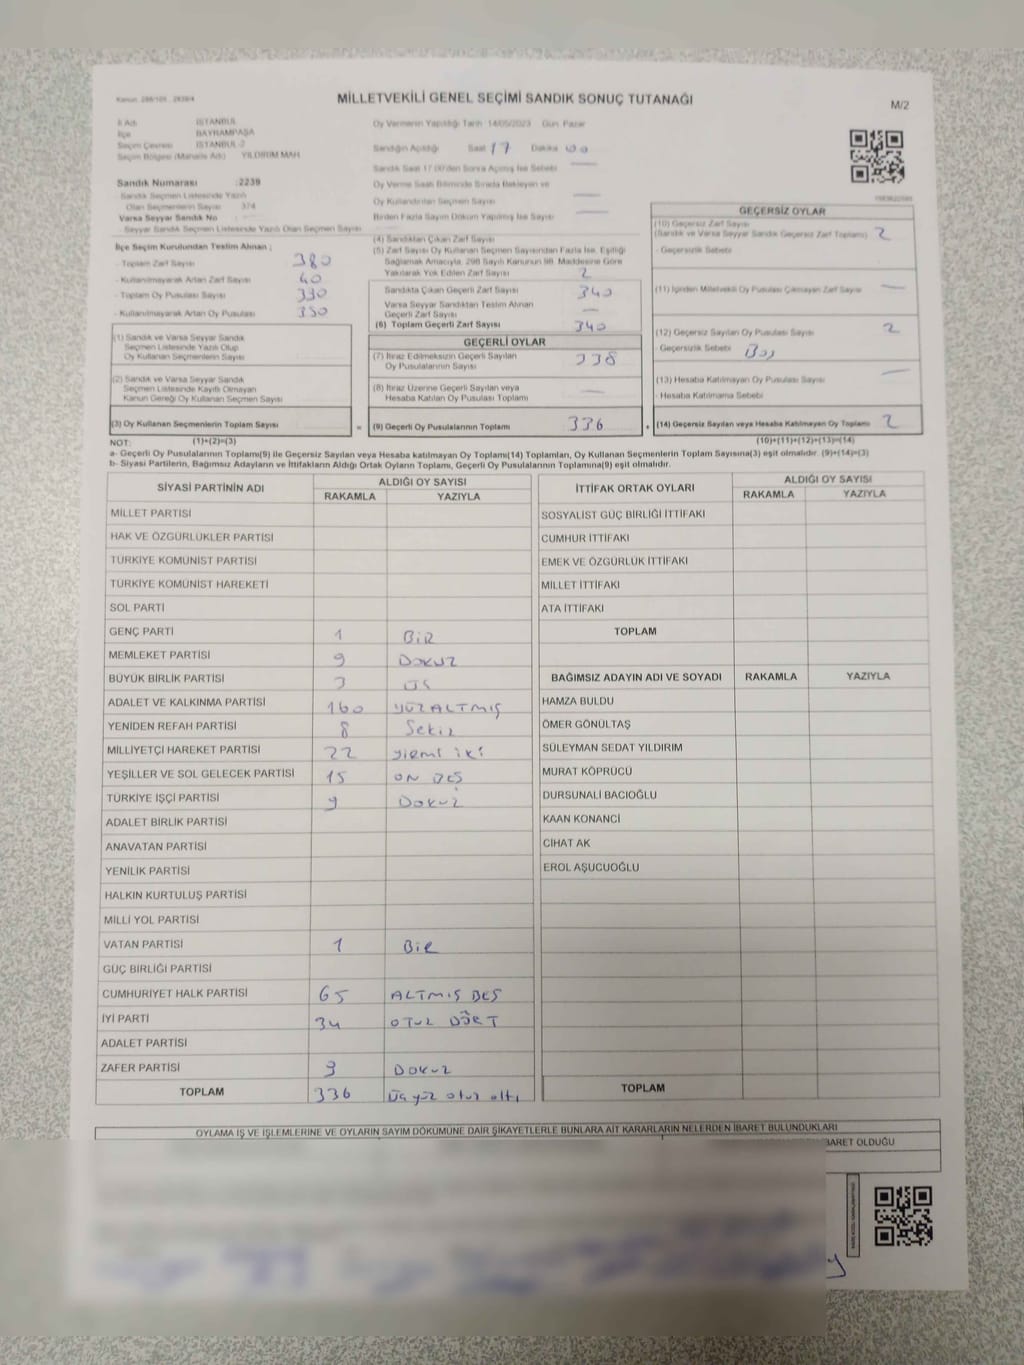 Kanun: 298/105 , 2839/4
MİLLETVEKİLİ GENEL SEÇİMİ SANDIK SONUÇ TUTANAĞI
M/2
İl Adı İSTANBUL
İlçe BAYRAMPAŞA
Seçim Çevresi İSTANBUL-2
Seçim Bölgesi (Mahalle Adı) YILDIRIM MAH
Sandık Numarası :2239
Sandık Seçmen Listesinde Yazılı
Olan Seçmenlerin Sayısı 374
Varsa Seyyar Sandık No
Seyyar Sandık Seçmen Listesinde Yazılı Olan Seçmen Sayısı
İlçe Seçim Kurulundan Teslim Alınan ;
- Toplam Zarf Sayısı 380
- Kullanılmayarak Artan Zarf Sayısı 40
- Toplam Oy Pusulası Sayısı 330
- Kullanılmayarak Artan Oy Pusulası 350
(1) Sandık ve Varsa Seyyar Sandık
Seçmen Listesinde Yazılı Olup
Oy Kullanan Seçmenlerin Sayısı
(2) Sandık ve Varsa Seyyar Sandık
Seçmen Listesinde Kayıtlı Olmayan
Kanun Gereği Oy Kullanan Seçmen Sayısı
(3) Oy Kullanan Seçmenlerin Toplam Sayısı
Oy Vermenin Yapıldığı Tarih 14/05/2023 Gün Pazar
Sandığın Açıldığı Saat 17 Dakika 00
Sandık Saat 17:00'den Sonra Açılmış İse Sebebi
Oy Verme Saati Bitiminde Sırada Bekleyen ve
Oy Kullandırılan Seçmen Sayısı
Birden Fazla Sayım Döküm Yapılmış İse Sayısı
(4) Sandıktan Çıkan Zarf Sayısı
(5) Zarf Sayısı Oy Kullanan Seçmen Sayısından Fazla İse, Eşitliği
Sağlamak Amacıyla, 298 Sayılı Kanunun 98. Maddesine Göre
Yakılarak Yok Edilen Zarf Sayısı 2
Sandıkta Çıkan Geçerli Zarf Sayısı 340
Varsa Seyyar Sandıktan Teslim Alınan
Geçerli Zarf Sayısı
(6) Toplam Geçerli Zarf Sayısı 340
GEÇERLİ OYLAR
(7) İtiraz Edilmeksizin Geçerli Sayılan
Oy Pusulalarının Sayısı 338
(8) İtiraz Üzerine Geçerli Sayılan veya
Hesaba Katılan Oy Pusulası Toplamı
= (9) Geçerli Oy Pusulalarının Toplamı 336
GEÇERSİZ OYLAR
(10) Geçersiz Zarf Sayısı
(Sandık ve Varsa Seyyar Sandık Geçersiz Zarf Toplamı) 2
- Geçersizlik Sebebi
(11) İçinden Milletvekili Oy Pusulası Çıkmayan Zarf Sayısı
(12) Geçersiz Sayılan Oy Pusulası Sayısı 2
- Geçersizlik Sebebi Boş
(13) Hesaba Katılmayan Oy Pusulası Sayısı
- Hesaba Katılmama Sebebi
+ (14) Geçersiz Sayılan veya Hesaba Katılmayan Oy Toplamı 2
NOT: (1)+(2)=(3) (10)+(11)+(12)+(13)=(14)
a- Geçerli Oy Pusulalarının Toplamı(9) ile Geçersiz Sayılan veya Hesaba katılmayan Oy Toplamı(14) Toplamları, Oy Kullanan Seçmenlerin Toplam Sayısına(3) eşit olmalıdır. (9)+(14)=(3)
b- Siyasi Partilerin, Bağımsız Adayların ve İttifakların Aldığı Ortak Oyların Toplamı, Geçerli Oy Pusulalarının Toplamına(9) eşit olmalıdır.
SİYASİ PARTİNİN ADI ALDIĞI OY SAYISI
RAKAMLA YAZIYLA
MİLLET PARTİSİ
HAK VE ÖZGÜRLÜKLER PARTİSİ
TÜRKİYE KOMÜNİST PARTİSİ
TÜRKİYE KOMÜNİST HAREKETİ
SOL PARTİ
GENÇ PARTİ 1 BİR
MEMLEKET PARTİSİ 9 DOKUZ
BÜYÜK BİRLİK PARTİSİ 3 ÜÇ
ADALET VE KALKINMA PARTİSİ 160 YÜZ ALTMIŞ
YENİDEN REFAH PARTİSİ 8 Sekiz
MİLLİYETÇİ HAREKET PARTİSİ 22 yirmi iki
YEŞİLLER VE SOL GELECEK PARTİSİ 15 ON BEŞ
TÜRKİYE İŞÇİ PARTİSİ 9 Dokuz
ADALET BİRLİK PARTİSİ
ANAVATAN PARTİSİ
YENİLİK PARTİSİ
HALKIN KURTULUŞ PARTİSİ
MİLLİ YOL PARTİSİ
VATAN PARTİSİ 1 BİR
GÜÇ BİRLİĞİ PARTİSİ
CUMHURİYET HALK PARTİSİ 65 ALTMIŞ BEŞ
İYİ PARTİ 34 OTUZ DÖRT
ADALET PARTİSİ
ZAFER PARTİSİ 9 DOKUZ
TOPLAM 336 üç yüz otuz altı
İTTİFAK ORTAK OYLARI ALDIĞI OY SAYISI
RAKAMLA YAZIYLA
SOSYALİST GÜÇ BİRLİĞİ İTTİFAKI
CUMHUR İTTİFAKI
EMEK VE ÖZGÜRLÜK İTTİFAKI
MİLLET İTTİFAKI
ATA İTTİFAKI
TOPLAM
BAĞIMSIZ ADAYIN ADI VE SOYADI RAKAMLA YAZIYLA
HAMZA BULDU
ÖMER GÖNÜLTAŞ
SÜLEYMAN SEDAT YILDIRIM
MURAT KÖPRÜCÜ
DURSUNALİ BACIOĞLU
KAAN KONANCİ
CİHAT AK
EROL AŞUCUOĞLU
TOPLAM
OYLAMA İŞ VE İŞLEMLERİNE VE OYLARIN SAYIM DÖKÜMÜNE DAİR ŞİKAYETLERLE BUNLARA AİT KARARLARIN NELERDEN İBARET BULUNDUKLARI
BARET OLDUĞU